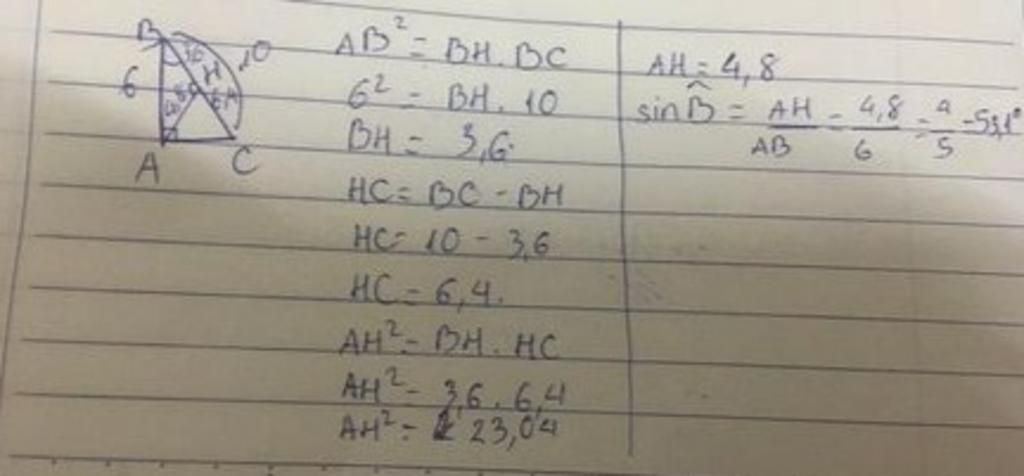 B
10
6
3,6
H
A
C
AB² = BH . BC
6² = BH . 10
BH = 3,6
HC = BC - BH
HC = 10 - 3,6
HC = 6,4.
AH² = BH . HC
AH² = 3,6 . 6,4
AH² = 23,04
AH = 4,8
sin B̂ = AH/AB = 4,8/6 = 4/5 = 53,1°